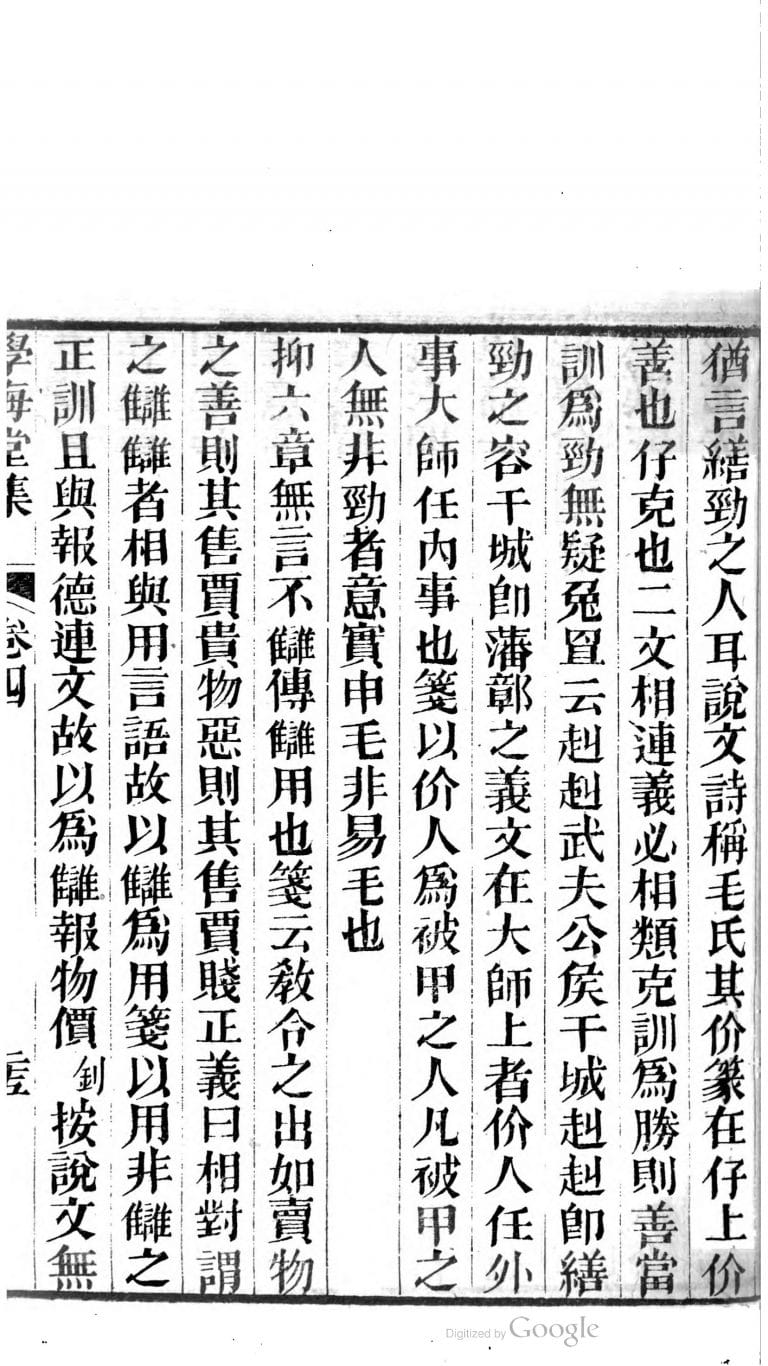 猶言繕勁之人耳說文詩稱毛氏其价篆在仔上价
善也仔克也二文相連義必相類克訓爲勝則善當
訓爲勁無疑兔罝云赳赳武夫公侯干城赳赳卽繕
勁之容干城卽藩鄣之義文在大師上者价人任外
事大師任內事也箋以价人爲被甲之人凡被甲之
人無非勁者意實申毛非易毛也
抑六章無言不讎傳讎用也箋云敎令之出如賣物
之善則其售賈貴物惡則其售賈賤正義曰相對謂
之讎讎者相與用言語故以讎爲用箋以用非讎之
正訓且與報德連文故以爲讎報物價釗按說文無
學海堂集 卷四
Digitized by Google